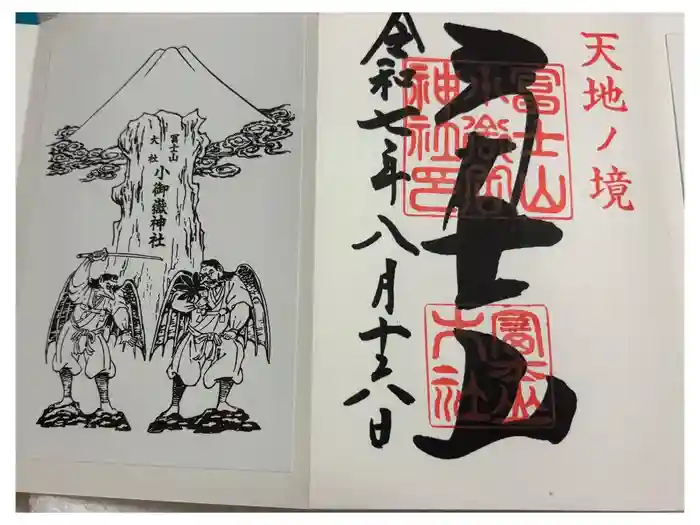 天地ノ境
冨士山
冨士山
小御嶽
神社印
冨士山
大社
令和七年八月十六日
冨士山
大社
小御嶽神社